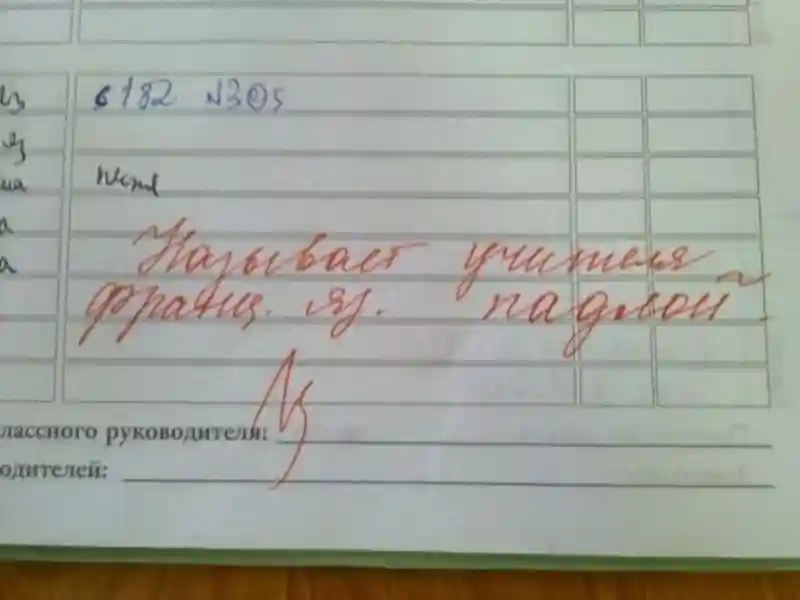 с 182 №305
яз
ма
а
Называет учителя
а
франц. яз. падлой.
лассного руководителя:
одителей: